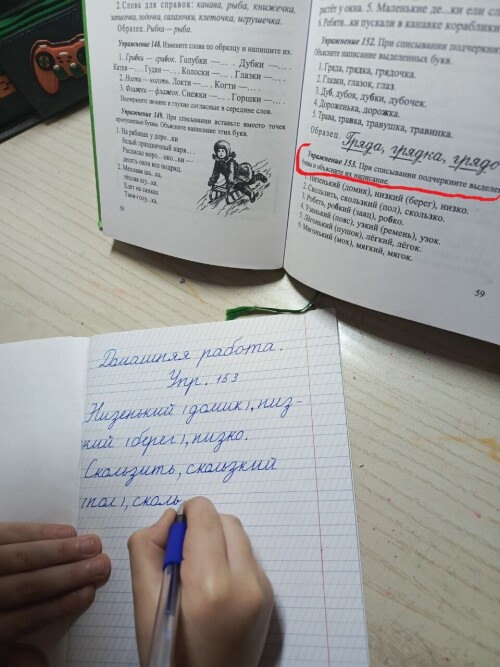 2. Слова для справок: канава, рыба, книжечка,
шапочка, лодочка, салазочки, клеточка, игрушечка.
Образец. Рыбка — рыба.
Упражнение 148. Измените слова по образцу и напишите их.
1. Грибки — грибок. Голубки —... . Дубки —... .
Катки —... . Гудки —... . Колоски —... . Глазки —... .
2. Ногти — ноготь. Локти —... . Когти —... .
3. Флажки — флажок. Снежки —... . Горшки —... .
Подчеркните звонкие и глухие согласные в середине слова.
Упражнение 149. При списывании вставьте вместо точек
пропущенные буквы. Объясните написание этих букв.
1. На рябинах у доро...ки
белый праздничный каря...
Раскисла моро... око...ки —
десять окон все подряд.
2. Мелькая ша...ка,
Новая шу...ка.
Едет на санках
Таня голу...ка.
58
растёт у окна. 5. Маленькие де...ки ели
6. Ребяти...ки пускали в канавке кораблики
Упражнение 152. При списывании подчеркните
Объясните написание выделенных букв.
1. Гряда, грядка, грядочка.
2. Глазки, глазок, глаз.
3. Дуб, дубок, дубки, дубочек.
4. Дороженька, дорожка.
5. Трава, травка, травушка, травинка.
Образец. Гряда, грядка, грядо
Упражнение 153. При списывании подчеркните выделен
буквы и объясните их написание.
1. Низенький (домик), низкий (берег), низко.
2. Скользить, скользкий (пол), скользко.
3. Робеть, робкий (заяц), робко.
4. Узенький (пояс), узкий (ремень), узок.
5. Лёгонький (пушок), лёгкий, лёгок.
6. Мягонький (мох), мягкий, мягок.
59
Домашняя работа.
Упр. 153
Низенький (домик), низ-
кий (берег), низко.
Скользить, скользкий
(пол), сколь